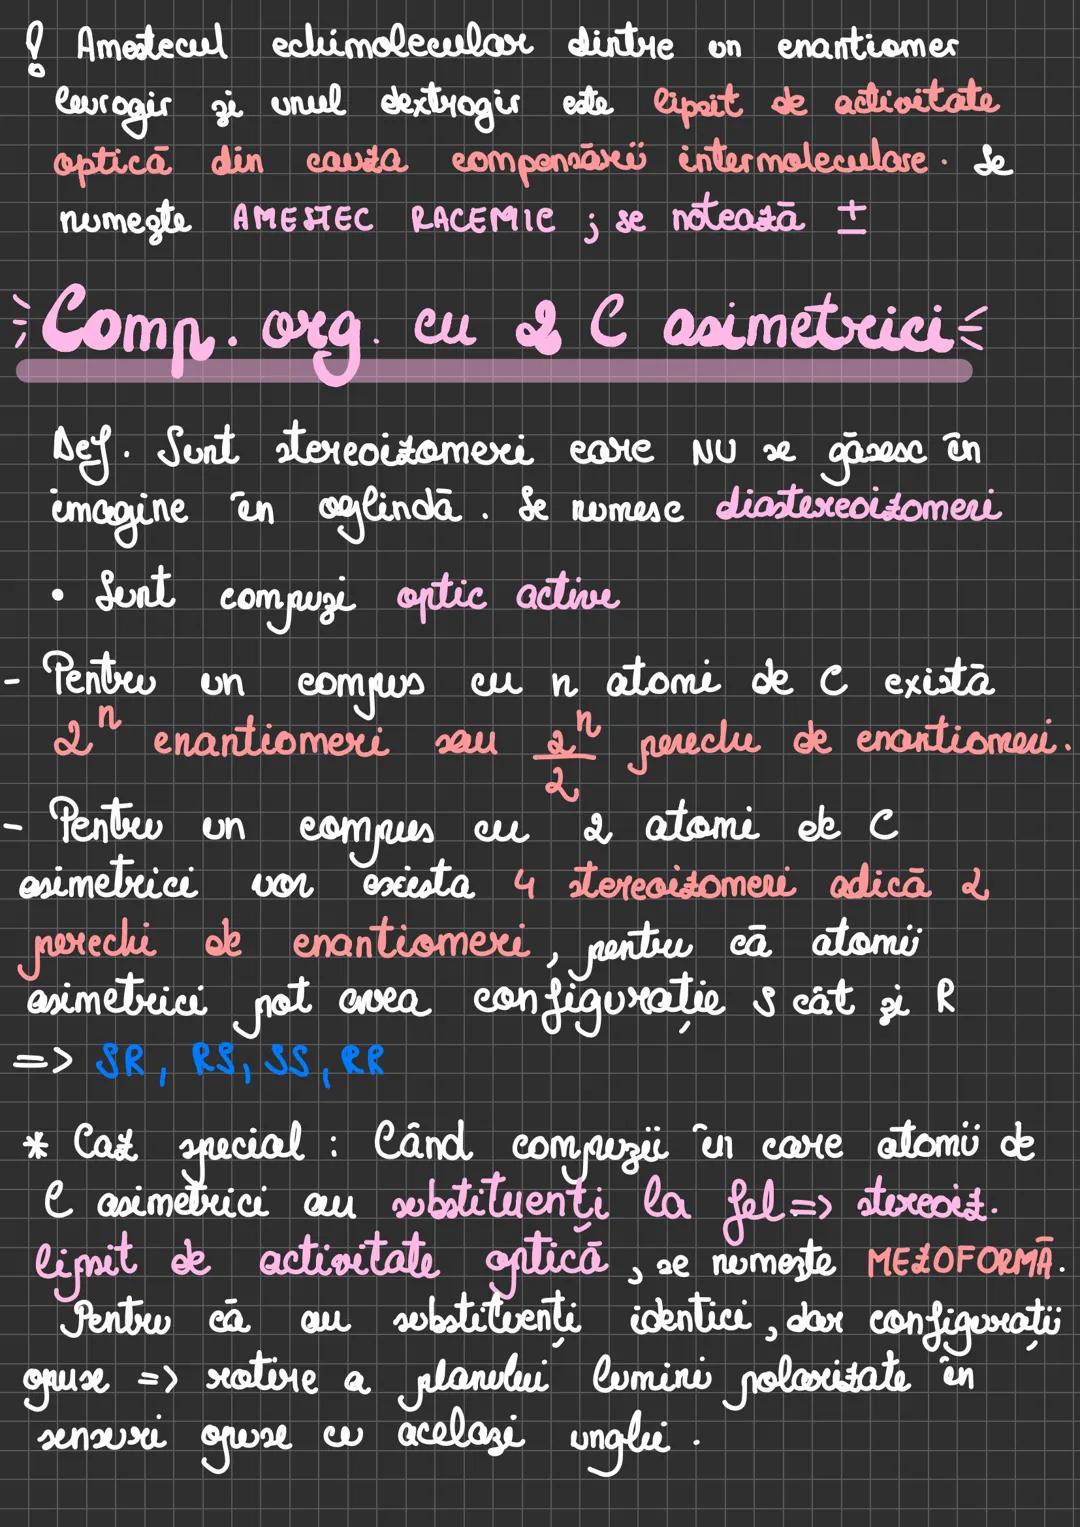 ! Amestecul echimolecular dintre un enantiomer
levogir și unul dextrogir este lipsit de activitate
optică din cauza compensării intermoleculare. Se
numește AMESTEC RACEMIC ; se notează ±
Comp. org. cu 2 C asimetrici
Def. Sunt stereoizomeri care NU se găsesc în
imagine în oglindă. Se numesc diastereoizomeri
• Sunt compuși optic active
- Pentru un compus cu n atomi de C există
2ⁿ enantiomeri sau 2ⁿ/2 perechi de enantiomeri.
- Pentru un compus cu 2 atomi de C
asimetrici vor exista 4 stereoizomeri adică 2
perechi de enantiomeri, pentru că atomii
asimetrici pot avea configurație S cât și R
=> SR, RS, SS, RR
* Caz special : Când compușii în care atomii de
C asimetrici au substituenți la fel => stereoiz.
lipsit de activitate optică, se numește MEZOFORMĂ.
Pentru că au substituenți identici, dar configurații
opuse => rotire a planului luminii polarizate în
sensuri opuse cu același unghi.